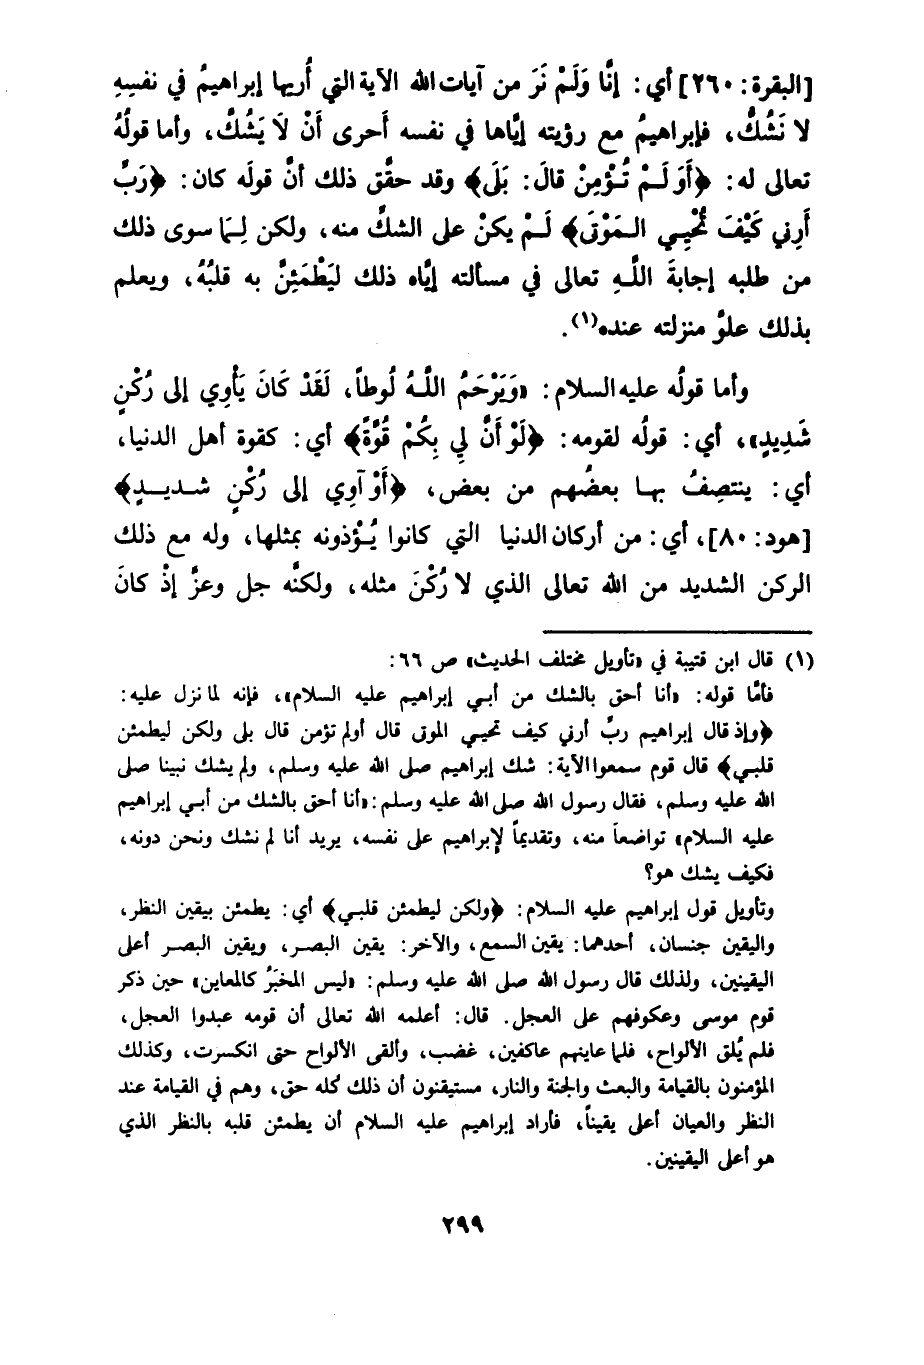 [البقرة: ٢٦٠] أي: إنَّا وَلَمْ نَرَ من آيات الله الآية التي أُريها إبراهيمُ في نفسِهِ
لا نَشُكُّ، فإبراهيمُ مع رؤيته إيَّاها في نفسه أحرى أنْ لَا يَشُكُّ، وأما قولُهُ
تعالى له: ﴿أَوَ لَـمْ تُـؤْمِنْ قالَ: بَلَى﴾ وقد حقَّق ذلك أنَّ قولَه كان: ﴿رَبِّ
أَرِنِي كَيْفَ تُحْيِـي الـمَوْتَى﴾ لَـمْ يكنْ على الشكِّ منه، ولكن لِـمَا سوى ذلك
من طلبه إجابةَ اللَّـهِ تعالى في مسألته إيَّاه ذلك ليَطْمَئِنَّ به قلبُهُ، ويعلم
بذلك علوَّ منزلته عنده(١).
وأما قولُه عليه السلام: «وَيَرْحَمُ اللَّـهُ لُوطاً، لَقَدْ كَانَ يَأْوِي إلى رُكْنٍ
شَدِيدٍ»، أي: قولُه لقومه: ﴿لَوْ أَنَّ لِي بِكُمْ قُوَّةً﴾ أي: كقوة أهل الدنيا،
أي: ينتصِفُ بهـا بعضُهم من بعض، ﴿أَوْ آوِي إلى رُكْنٍ شـديـدٍ﴾
[هود: ٨٠]، أي: من أركان الدنيا التي كانوا يُـؤْذونه بمثلها، وله مع ذلك
الركن الشديد من الله تعالى الذي لا رُكْنَ مثله، ولكنَّه جل وعزَّ إذْ كانَ
(١) قال ابن قتيبة في «تأويل مختلف الحديث» ص ٦٦:
فأمَّا قوله: «أنا أحق بالشك من أبـي إبراهيم عليه السلام»، فإنه لما نزل عليه:
﴿وإذ قال إبراهيم ربِّ أرني كيف تحيـي الموتى قال أولم تؤمن قال بلى ولكن ليطمئن
قلبـي﴾ قال قوم سمعوا الآية: شك إبراهيم صلى الله عليه وسلم، ولم يشك نبينا صلى
الله عليه وسلم، فقال رسول الله صلى الله عليه وسلم: «أنا أحق بالشك من أبـي إبراهيم
عليه السلام» تواضعاً منه، وتقديماً لإبراهيم على نفسه، يريد أنا لم نشك ونحن دونه،
فكيف يشك هو؟
وتأويل قول إبراهيم عليه السلام: ﴿ولكن ليطمئن قلبـي﴾ أي: يطمئن بيقين النظر،
واليقين جنسان، أحدهما: يقين السمع، والآخر: يقين البصر، ويقين البصر أعلى
اليقينين، ولذلك قال رسول الله صلى الله عليه وسلم: «ليس المخبَرُ كالمعاين» حين ذكر
قوم موسى وعكوفهم على العجل. قال: أعلمه الله تعالى أن قومه عبدوا العجل،
فلم يُلق الألواح، فلما عاينهم عاكفين، غضب، وألقى الألواح حتى انكسرت، وكذلك
المؤمنون بالقيامة والبعث والجنة والنار، مستيقنون أن ذلك كله حق، وهم في القيامة عند
النظر والعيان أعلى يقيناً، فأراد إبراهيم عليه السلام أن يطمئن قلبه بالنظر الذي
هو أعلى اليقينين.
٢٩٩